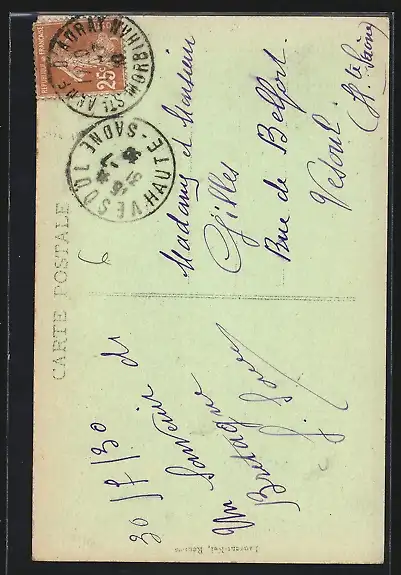 RÉPUBLIQUE FRANÇAISE
25c
STE ANNE D'AURAY MORBIHAN
VESOUL HTE-SAONE
CARTE POSTALE
30/7/30
Un souvenir de
Bretagne
Madame et Monsieur
Gilles
Rue de Belfort
Vesoul
(Hte Saône)
Laurent-Nel, Rennes